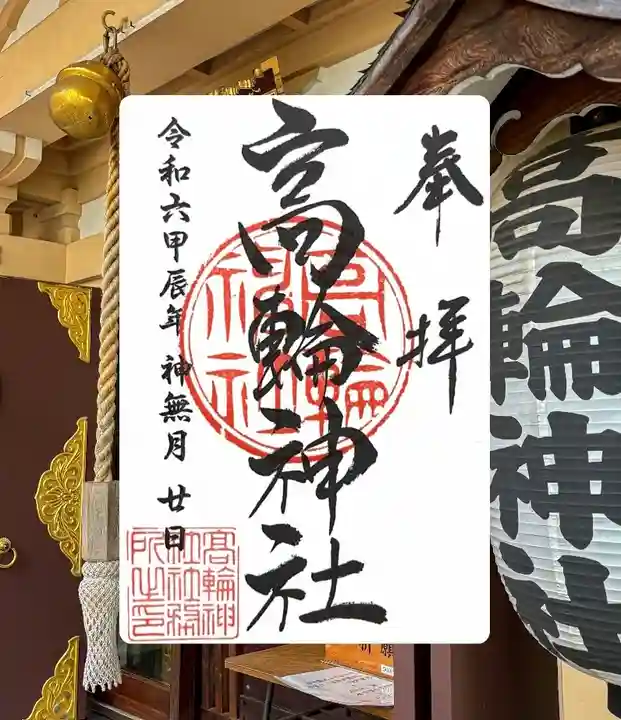 奉拝
高輪神社
令和六甲辰年 神無月 廿日
高輪神社
髙輪神社社務所之印
高輪神社